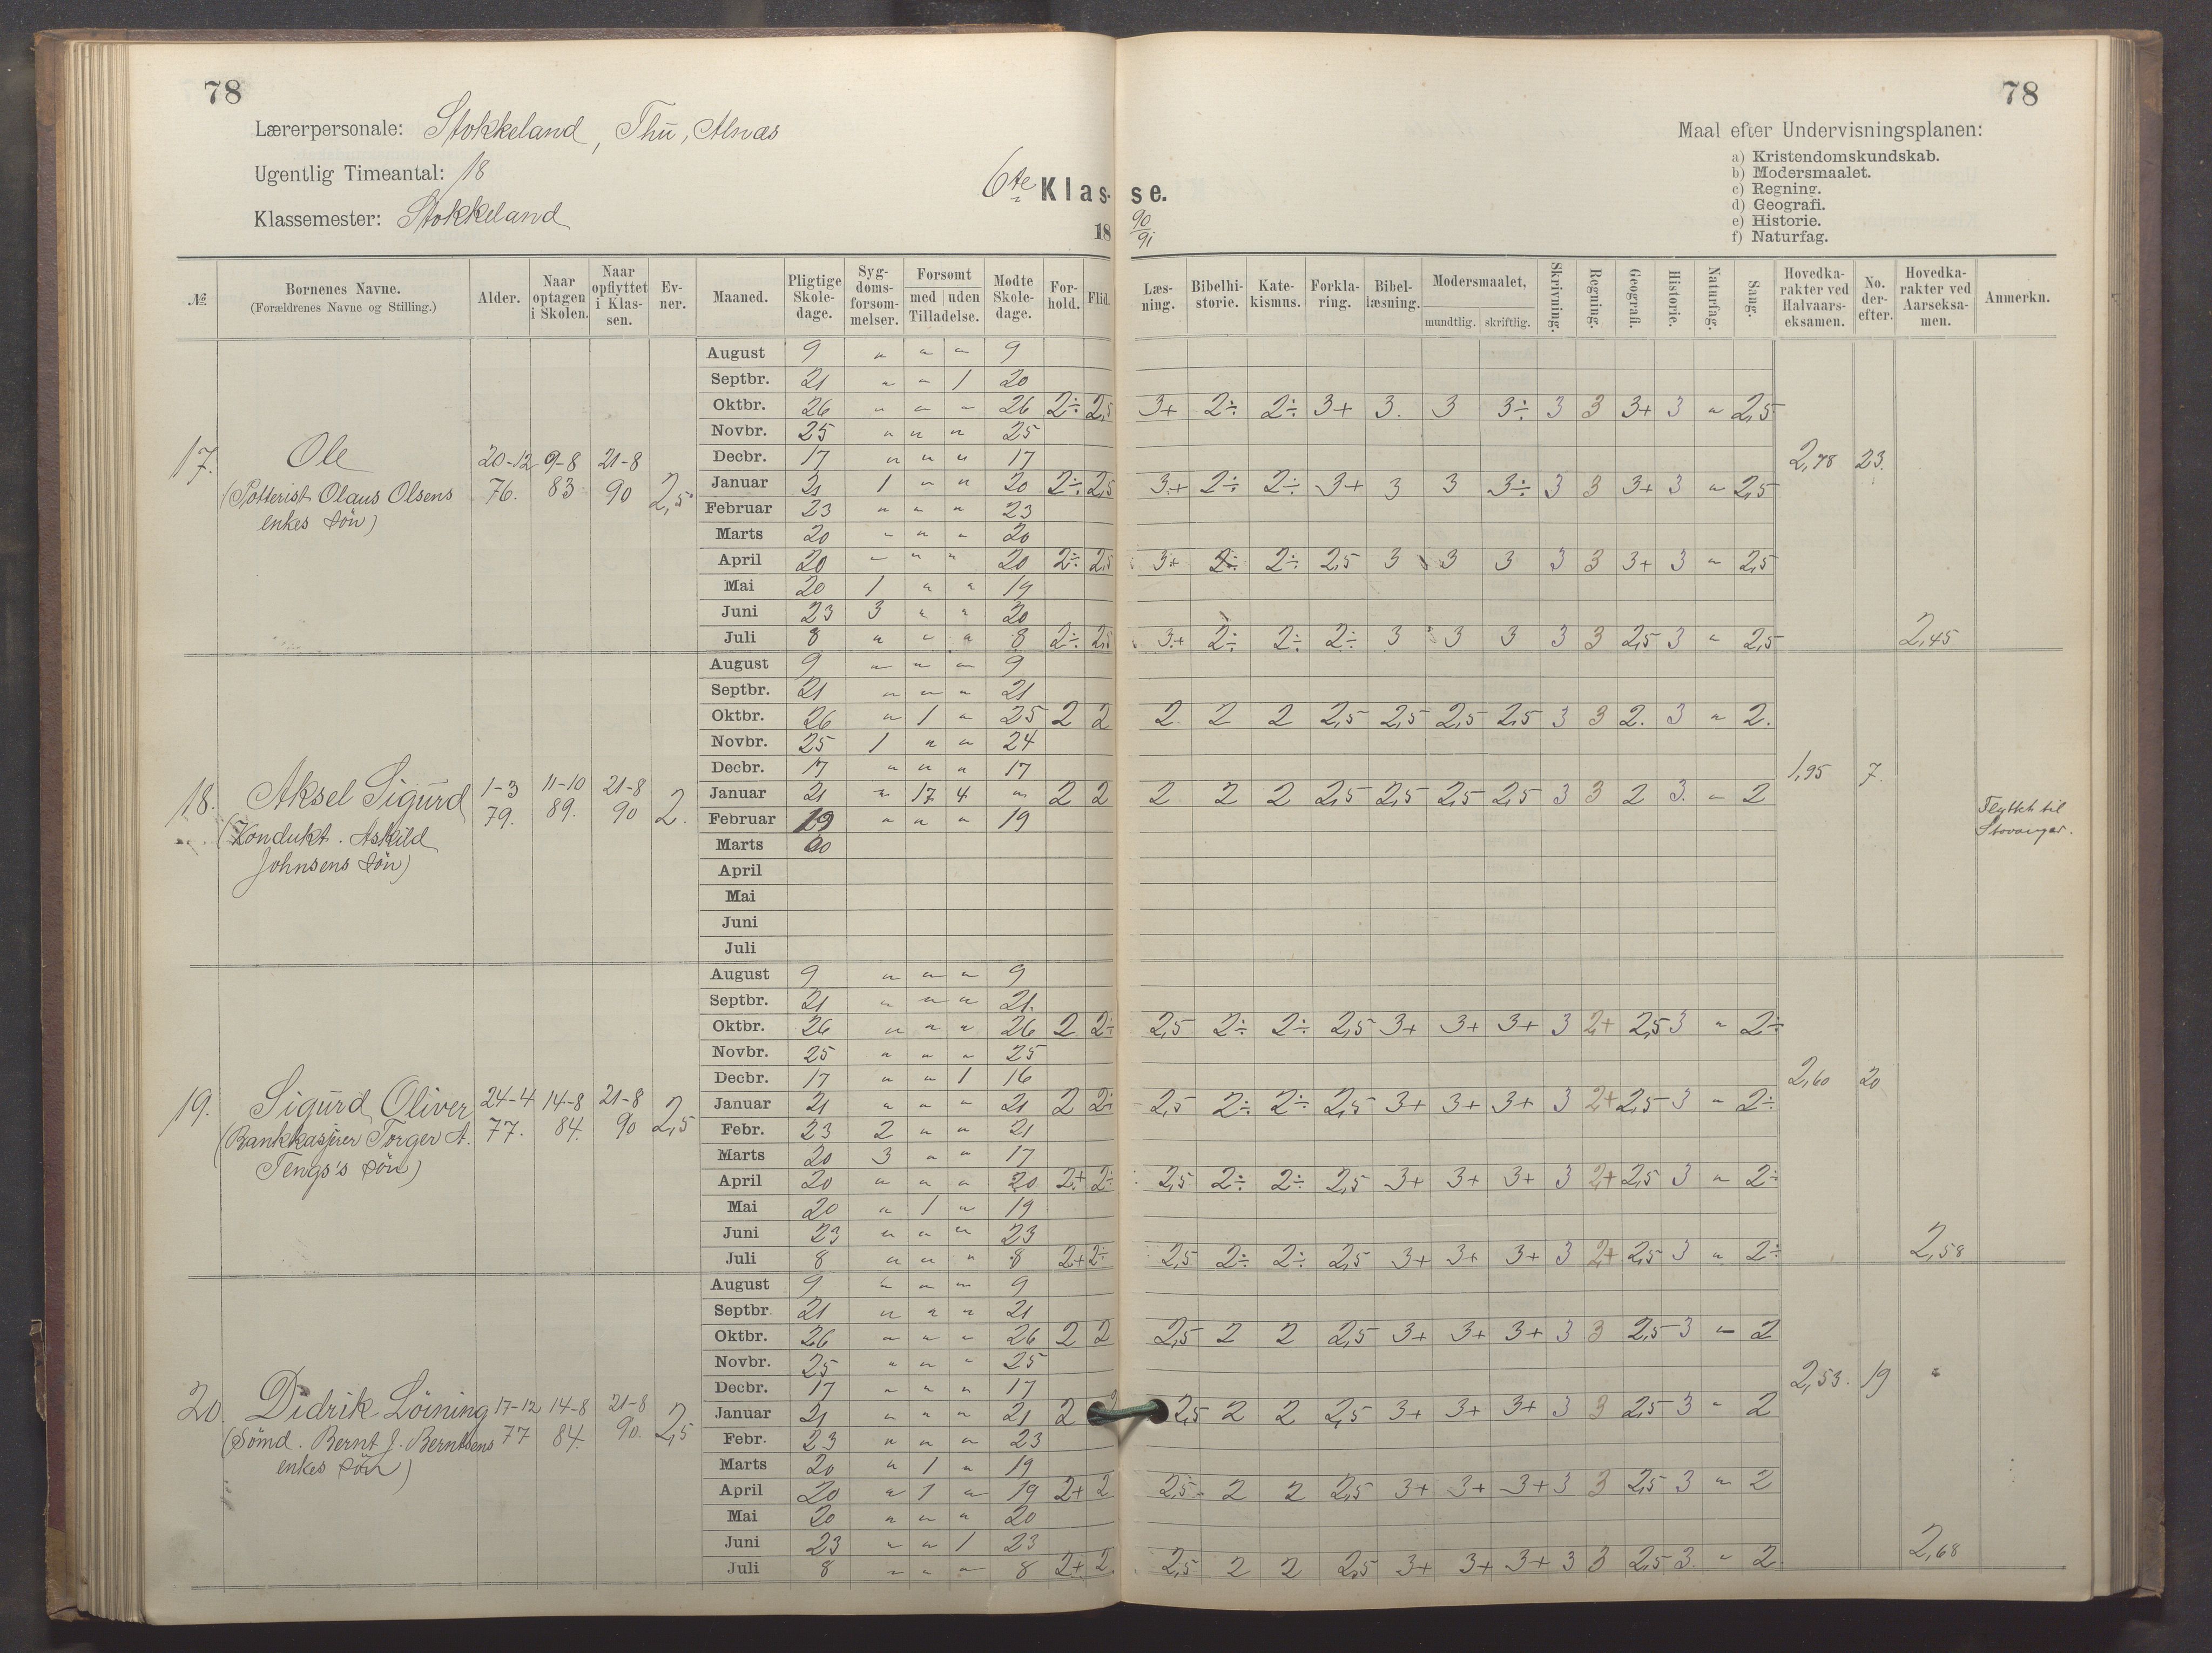 78
78
Lærerpersonale: Stokkeland, Thu, Alnæs
Maal efter Undervisningsplanen:
a) Kristendomskundskab.
b) Modersmaalet.
c) Regning.
d) Geografi.
e) Historie.
f) Naturfag.
Ugentlig Timeantal: 18
6te Klasse.
Klassemester: Stokkeland
18 90/91
№ Børnenes Navne. (Forældrenes Navne og Stilling.) Alder. Naar optagen i Skolen. Naar opflyttet i Klassen. Evner. Maaned. Pligtige Skoledage. Sygdomsforsømmelser. Forsømt med uden Tilladelse. Mødte Skoledage. Forhold. Flid. Læsning. Bibelhistorie. Katekismus. Forklaring. Bibellæsning. Modersmaalet, mundtlig. skriftlig. Skrivning. Regning. Geografi. Historie. Naturfag. Sang. Hovedkarakter ved Halvaarseksamen. No. derefter. Hovedkarakter ved Aarseksamen. Anmerkn.
17. Ole (Potterist Olaus Olsens enkes søn) 20-12 76. 9-8 83 21-8 90 2,5 2,78 23. 2,45
August 9 " " " 9
Septbr. 21 " " 1 20
Oktbr. 26 " " " 26 2÷ 2,5 3+ 2÷ 2÷ 3+ 3. 3 3÷ 3 3 3+ 3 " 2,5
Novbr. 25 " " " 25
Decbr. 17 " " " 17
Januar 21 1 " " 20 2÷ 2,5 3+ 2÷ 2÷ 3+ 3 3 3÷ 3 3 3+ 3 " 2,5
Februar 23 " " " 23
Marts 20 " " " 20
April 20 " " " 20 2÷ 2,5 3+ 2÷ 2÷ 2,5 3 3 3 3 3 3+ 3 " 2,5
Mai 20 1 " " 19
Juni 23 3 " " 20
Juli 8 " " " 8 2÷ 2,5 3+ 2÷ 2÷ 2÷ 3 3 3 3 3 2,5 3 " 2,5
18. Aksel Sigurd (Kondukt. Askild Johnsens søn) 1-3 79. 11-10 89. 21-8 90 2. 1,95 7. Flyttet til Stavanger.
August 9 " " " 9
Septbr. 21 " " " 21
Oktbr. 26 " 1 " 25 2 2 2 2 2 2,5 2,5 2,5 2,5 3 3 2. 3 " 2.
Novbr. 25 1 " " 24
Decbr. 17 " " " 17
Januar 21 " 17 4 " 2 2 2 2 2 2,5 2,5 2,5 2,5 3 3 2 3. " 2
Februar 19 " " " 19
Marts 20
April
Mai
Juni
Juli
19. Sigurd Oliver (Bankkasjrer Torger A. Tengs's søn) 24-4 77. 14-8 84. 21-8 90 2,5 2,60 20 2,58
August 9 " " " 9
Septbr. 21 " " " 21.
Oktbr. 26 " " " 26 2 2÷ 2,5 2÷ 2÷ 2,5 3+ 3+ 3+ 3 2+ 2,5 3 " 2÷
Novbr. 25 " " " 25
Decbr. 17 " " 1 16
Januar 21 " " " 21 2 2÷ 2,5 2÷ 2÷ 2,5 3+ 3+ 3+ 3 2+ 2,5 3 " 2÷
Febr. 23 2 " " 21
Marts 20 3 " " 17
April 20 " " " 20 2+ 2÷ 2,5 2÷ 2÷ 2,5 3+ 3+ 3+ 3 2+ 2,5 3 " 2÷
Mai 20 " 1 " 19
Juni 23 " " " 23
Juli 8 " " " 8 2+ 2÷ 2,5 2÷ 2÷ 2,5 3+ 3+ 3+ 3 2+ 2,5 3 " 2÷
20. Didrik Löining (Sömd. Bernt J. Berntsens enkes søn) 17-12 77 14-8 84. 21-8 90. 2,5 2,53. 19 " 2,68
August 9 " " " 9
Septbr 21 " " " 21
Oktbr. 26 " " " 26 2 2 2,5 2 2 2,5 3+ 3+ 3+ 3 3 2,5 3 " 2
Novbr. 25 " " " 25
Decbr. 17 " " " 17
Januar 21 " " " 21 2 2 2,5 2 2 2,5 3+ 3+ 3+ 3 3 2,5 3 " 2
Febr. 23 " " " 23
Marts 20 " 1 " 19
April 20 " 1 " 19 2+ 2 2,5 2 2 2,5 3+ 3+ 3+ 3 3 2,5 3 " 2
Mai 20 " " " 20
Juni 23 " " 1 23
Juli 8 " " " 8 2+ 2. 2,5 2 2 2,5 3+ 3+ 3+ 3 3 2,5 3. " 2.